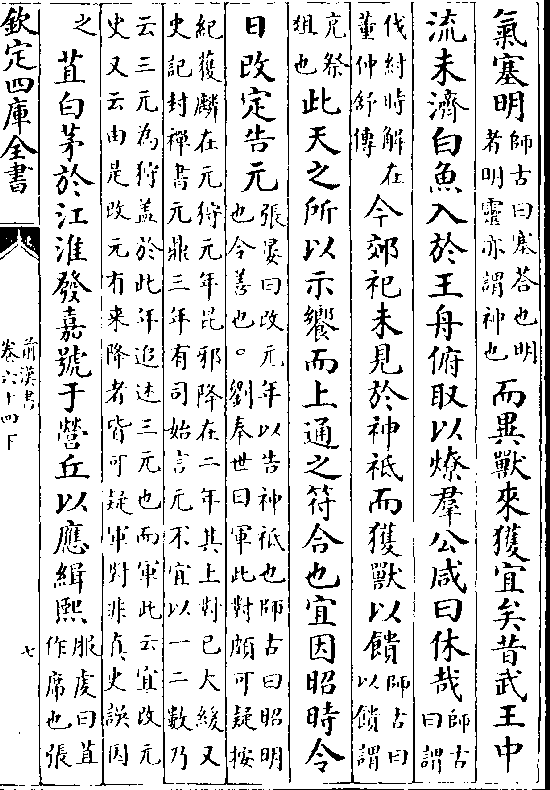 氣塞明師古曰塞荅也明
者明靈亦謂神也而異獸來獲宜矣昔武王中
流未濟白魚入於王舟俯取以燎羣公咸曰休哉師古
曰謂
伐紂時解在
董仲舒傳今郊祀未見於神祇而獲獸以饋師古曰
以饋謂
充祭
俎也此天之所以示饗而上通之符合也宜因昭時令
日改定告元張晏曰改元年以告神祇也師古曰昭明
也令善也。劉奉世曰軍此對頗可疑按
紀獲麟在元狩元年昆邪降在二年其上對已大緩又
史記封禪書元鼎三年有司始言元不宜以一二數乃
云三元為狩蓋於此年追述三元也而軍此云宜改元
史又云由是改元有来降者皆可疑軍對非真史誤因
之
苴白茅於江淮發嘉號于營丘以應緝熙服虔曰苴
作席也張
欽定四庫全書
前漢書
卷六十四下
七